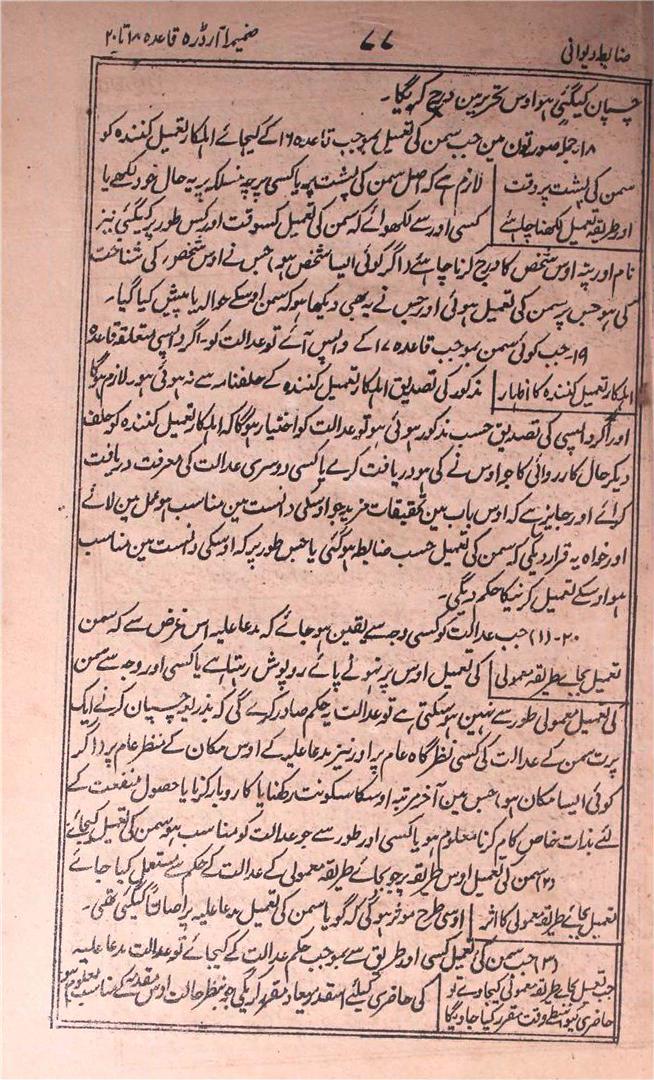 ضابطہ دیوانی
۷۷
ضمیمہ ا آرڈر ۵ قاعدہ ۱۸ تا ۲۰
چسپان کیگئی ہو اوس تحریر مین درج کریگا۔
۱۸۔ جملہ صورتون مین جب سمن کی تعمیل بموجب قاعدہ ۱۶ کے کیجائے اہلکار تعمیل کنندہ کو
سمن کی پشت پر وقت
اور طریقہ تعمیل لکھنا چاہئے
لازم ہے کہ اصل سمن کی پشت پر یا کسی پرچہ منسلکہ پر یہ حال خود لکھے یا
کسی اور سے لکھوائے کہ سمن کی تعمیل کسوقت اور کس طور پر کیگئی نیز
نام اور پتہ اوس شخص کا درج کرنا چاہئے (اگر کوئی ایسا شخص ہو) جس نے اوس شخص کی شناخت
کی ہو جس پر سمن کی تعمیل ہوئی اور جس نے یہ بھی دیکھا ہو کہ سمن اوسکے حوالہ یا پیش کیا گیا۔
۱۹۔ جب کوئی سمن بموجب قاعدہ ۱۷ کے واپس آئے تو عدالت کو۔ اگر واپسی متعلقہ قاعدہ
اہلکار تعمیل کنندہ کا اظہار
مذکور کی تصدیق اہلکار تعمیل کنندہ کے حلفنامہ سے نہ ہوئی ہو۔ لازم ہوگا
اور اگر واپسی کی تصدیق حسب مذکور ہوئی ہو تو عدالت کو اختیار ہوگا کہ اہلکار تعمیل کنندہ کو حلف
دیکر حال کارروائی کا جو اوس نے کی ہو دریافت کرے یا کسی دوسری عدالت کی معرفت دریافت
کرائے اور جایز ہے کہ اوس باب مین تحقیقات مزید جو اوسکی دانست مین مناسب ہو عمل مین لائے
اور خواہ یہ قرار دیگی کہ سمن کی تعمیل حسب ضابطہ ہوگئی یا جس طور پر کہ اوسکی دانست مین مناسب
ہو اوسکے تعمیل کرنیکا حکم دیگی۔
۲۰۔ (۱) جب عدالت کو کسی وجہ سے یقین ہو جائے کہ مدعا علیہ اس غرض سے کہ سمن
تعمیل بجائے طریقہ معمولی
کی تعمیل اوس پر نہونے پائے روپوش رہتا ہے یا کسی اور وجہ سے سمن
کی تعمیل معمولی طور سے نہین ہو سکتی ہے تو عدالت یہ حکم صادر کرے گی کہ بذریعہ چسپان کرنے ایک
پرت سمن کے عدالت کی کسی نظر گاہ عام پر اور نیز مدعا علیہ کے اوس مکان کے منظر عام پر (اگر
کوئی ایسا مکان ہو) جس مین آخر مرتبہ اوسکا سکونت رکھنا یا کاروبار کرنا یا حصول منفعت کے
لئے بذات خاص کام کرنا معلوم ہو یا کسی اور طور سے جو عدالت کو مناسب ہو سمن کی تعمیل کیجائے
(۲) سمن کی تعمیل اوس طریقہ پر جو بجائے طریقہ معمولی کے عدالت کے حکم سے مستعمل کیا جائے
تعمیل بجائے طریقہ معمولی کا اثر
اوسی طرح موثر ہوگی کہ گویا سمن کی تعمیل مدعا علیہ پر اصالتاً کیگئی تھی۔
(۳) جب سمن کی تعمیل کسی اور طریق سے بموجب حکم عدالت کے کیجائے تو عدالت مدعا علیہ
جب تعمیل بجائے طریقہ معمولی کیجاوے تو
حاضری کیواسطے وقت مقرر کیا جاویگا
کی حاضری کیلئے اسقدر میعاد مقرر کریگی جو بنظر حالت اوس مقدمہ کے مناسب معلوم ہو